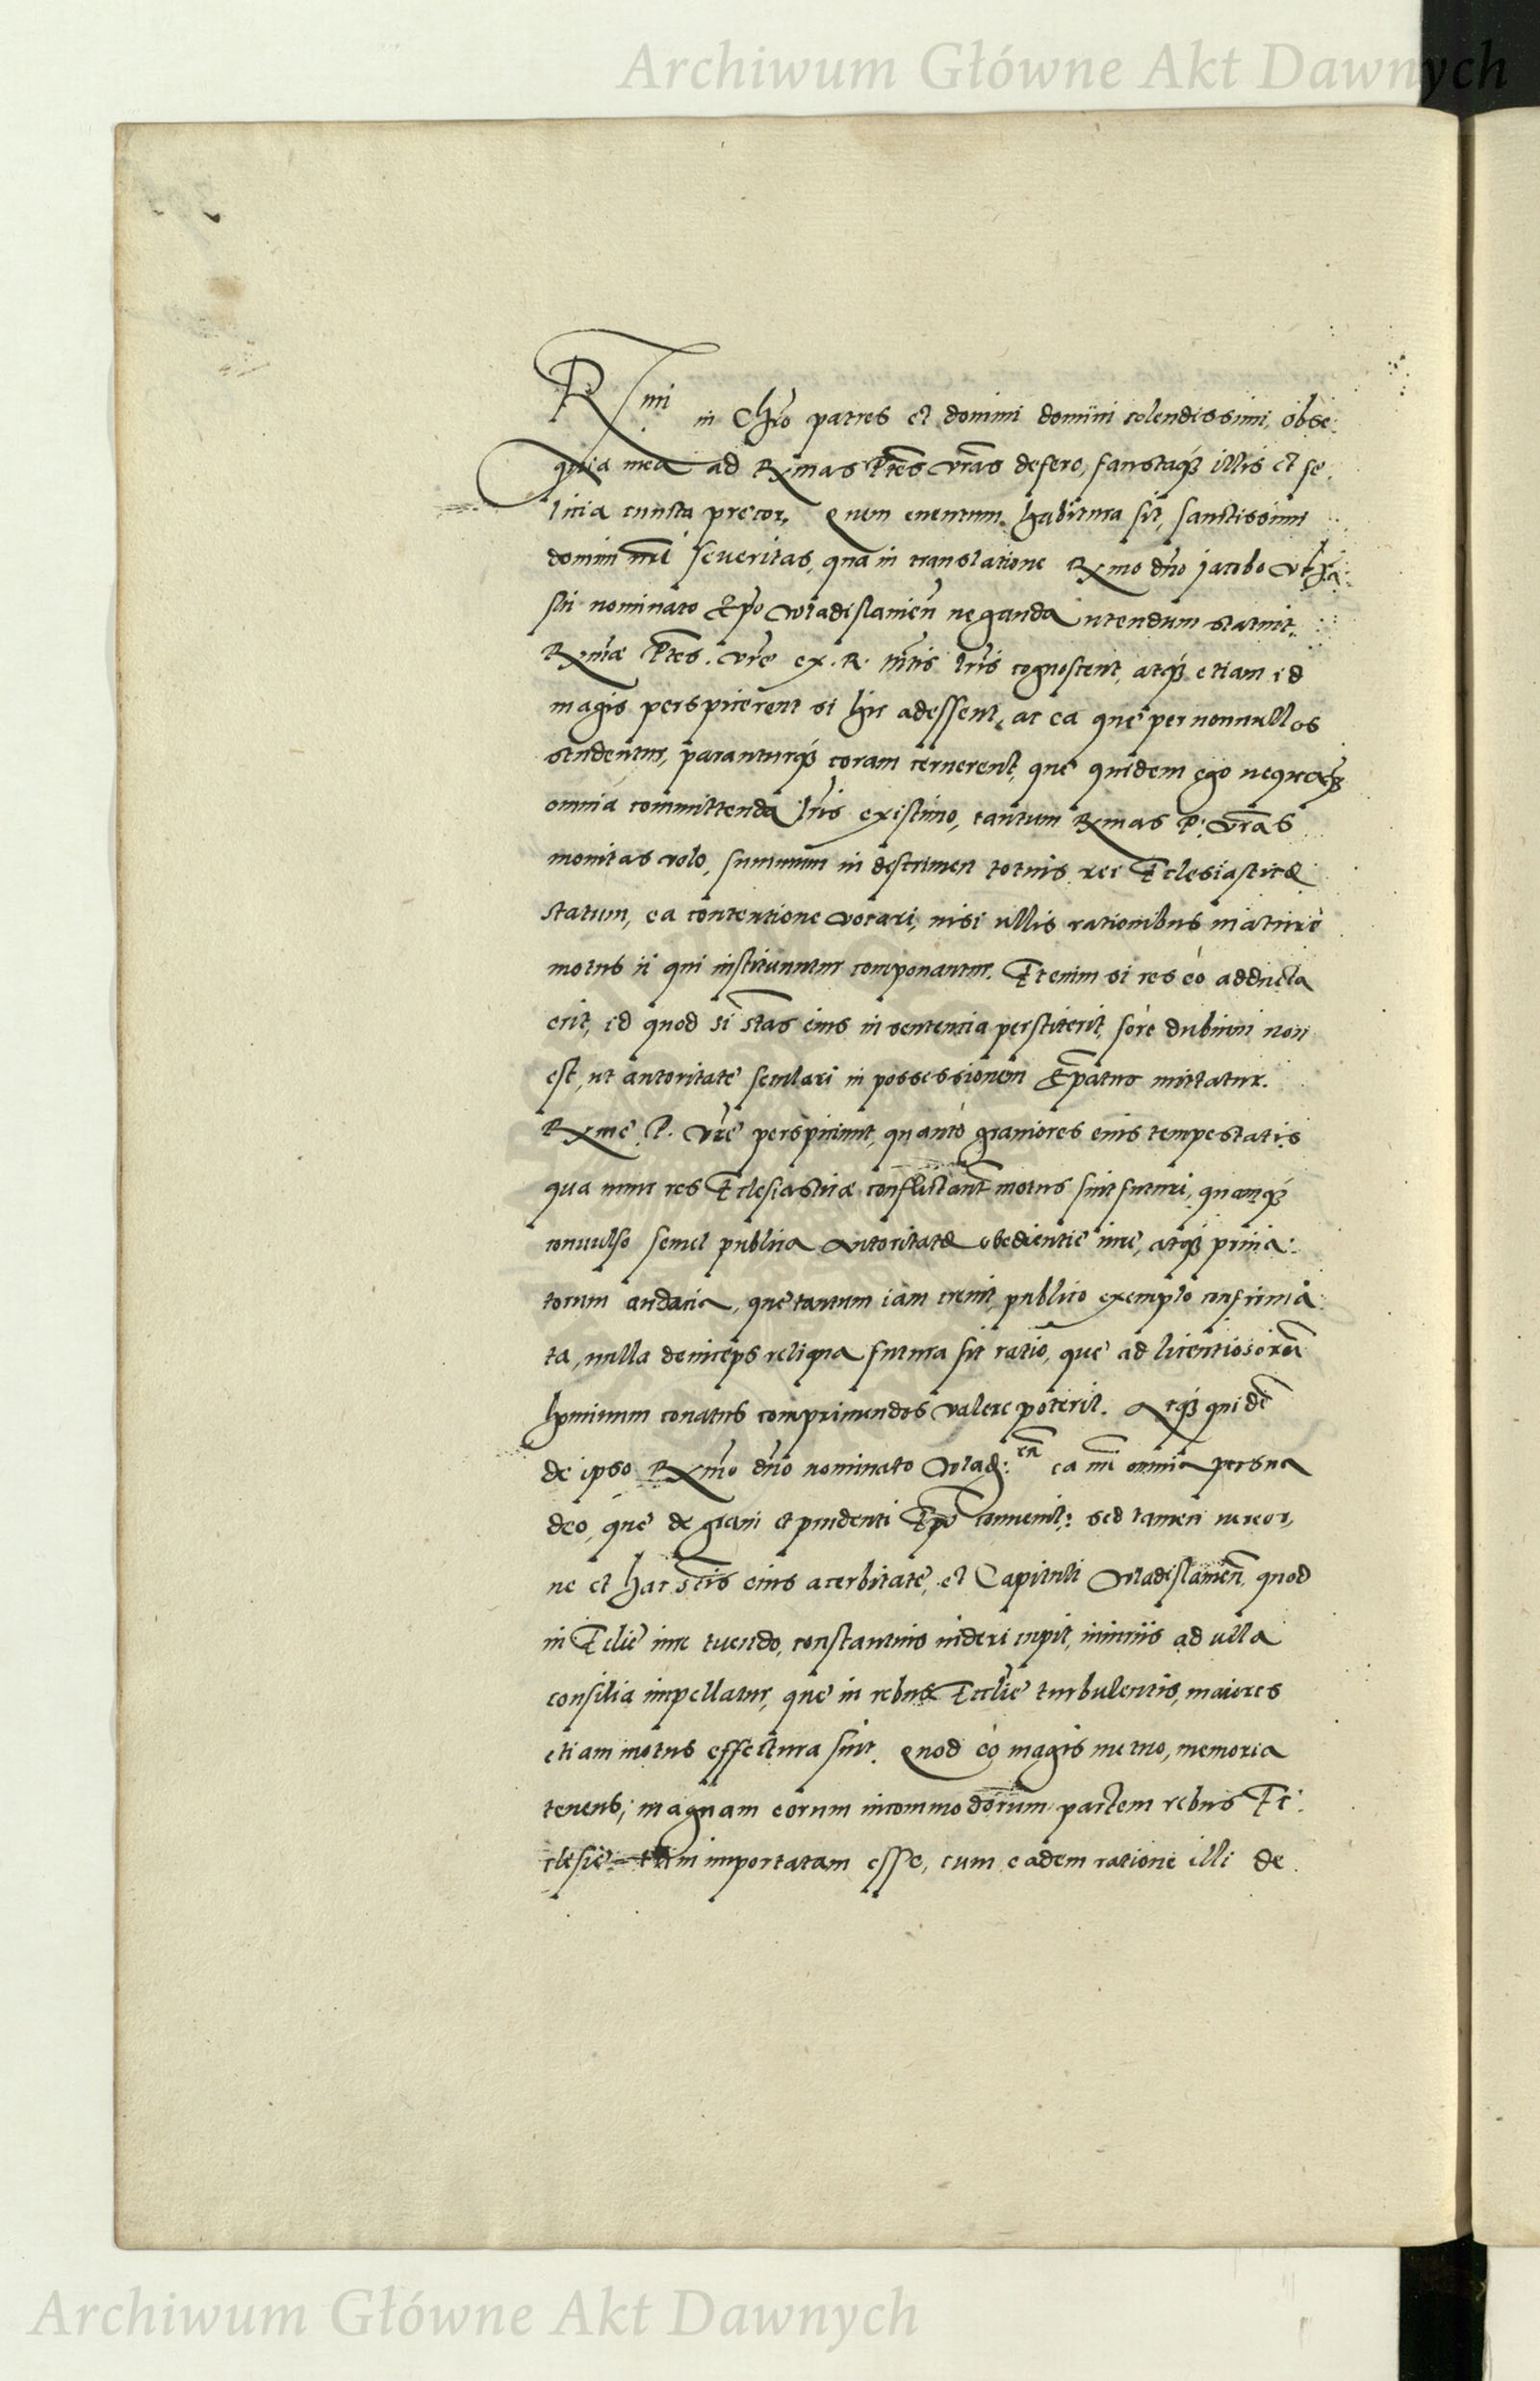 Archiwum Główne Akt Dawnych
Rmi in Chro patres et domini domini colendissimi, obse
quia mea ad Rxmas Ptes vras defero, faustaq́ illis et fe
licia cuncta precor. Quem euentum habitura sit, sanctissimi
domini nri seueritas, qua in translatione Rxmo dno Jacobo Vcha
sci nominato Epo Wladislauien neganda utendum statuit.
Rxmæ Ptes. vre ex. R. Mtis lris cognoscent, atq́ etiam id
magis perspicerent si hic adessent, ac ea que per nonnullos
studentur, paranturq́ coram cernerent, que quidem ego nequaq́
omnia committenda lris existimo, tantum Rxmas P. vras
monitas volo, summum in discrimen totius rei Ecclesiasticæ
statum, ea contentione vocari, nisi ullis rationibus maturè
motus ii qui instituuntur componantur. Etenim si res eò adducta
erit, id quod si Stas eius in sententia perstiterit, fore dubium non
est, ut autoritate seculari in possessionem Epatus mittatur.
Rxme P. vre perspiciunt, quantò grauiores eius tempestatis
qua nunc res Eclesiasticæ conflictant motus sint futuri, quamq́
conuulso semel publica autoritate obedientie iure, atq́ priua
torum audacia, que tantum iam creuit, publico exemplo confirma
ta, nulla deinceps reliqua futura sit ratio, que ad licentiosorum
hominum conatus comprimendos valere poterit. Atq́ quidē
de ipso Rxmo dno nominato Wlad: en ea mi omnia persua
deo, que de graui et prudenti Epo conuenit: sed tamen uereor,
ne et hac Stis eius acerbitate, et Capituli Wladislauien, quod
in Eclie iure tuendo, constantius uideri cupit, inimiis ad ulla
consilia impellatur, que in rebus Ecclie turbulentis, maiores
etiam motus effectura sint. Quod eò magis metuo, memoria
tenens, magnam eorum incommodorum partem rebus Ec
clesie importatam esse, cum eadem ratione illi de
Archiwum Główne Akt Dawnych